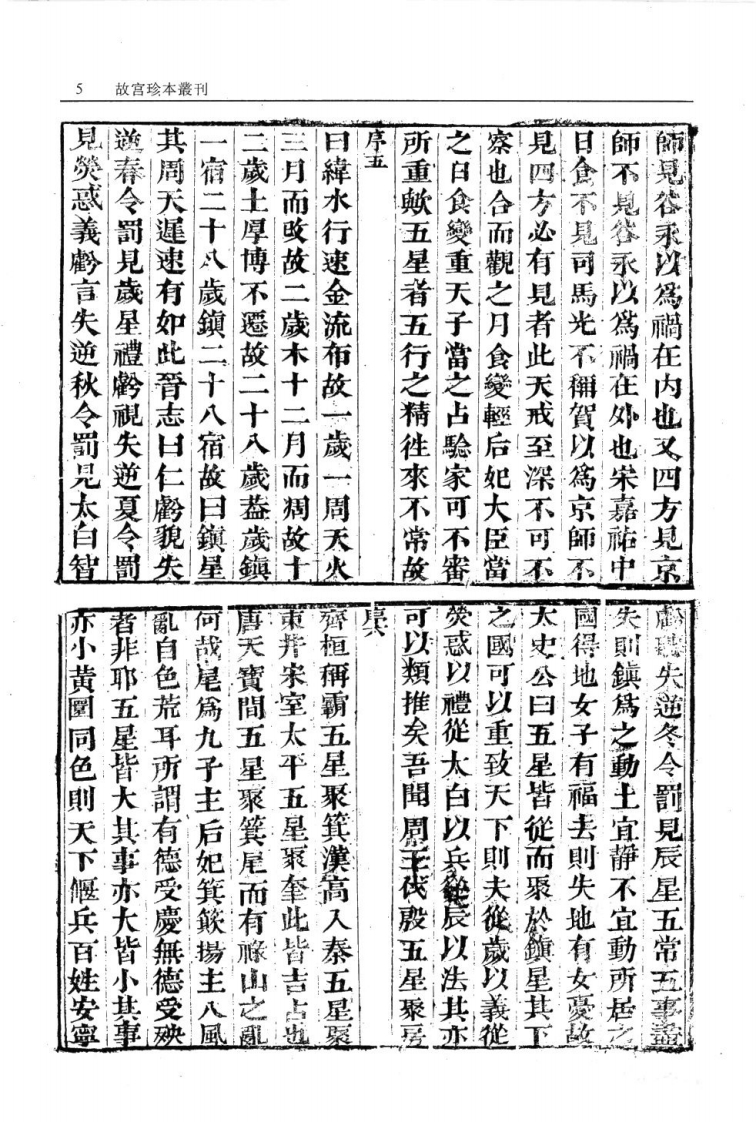 5 故宮珍本叢刊
師見谷永以爲禍在内也又四方見京
師不見谷永以爲禍在外也宋嘉祐中
日食不見司馬光不稱賀以爲京師不
見四方必有見者此天戒至深不可不
察也合而觀之月食變輕后妃大臣當
之日食變重天子當之占驗家可不審
所重歟五星者五行之精徃來不常故
序五
曰緯水行速金流布故一歲一周天火
三月而改故二歲木十二月而凋故十
二歲土厚博不遷故二十八歲葢歲鎮
一宿二十八歲鎮二十八宿故曰鎮星
其周天遲速有如此晉志曰仁虧貌失
逆春令罰見歲星禮虧視失逆夏令罰
見熒惑義虧言失逆秋令罰見太白智
虧聽失逆冬令罰見辰星五常五事盡
失則鎮爲之動土宜靜不宜動所居之
國得地女子有福去則失地有女憂故
太史公曰五星皆從而聚於鎮星其下
之國可以重致天下則夫從歲以義從
熒惑以禮從太白以兵從辰以法其亦
可以類推矣吾聞周王伐殷五星聚房
序六
齊桓稱霸五星聚箕漢高入秦五星聚
東井宋室太平五星聚奎此皆吉占也
唐天寶間五星聚箕尾而有祿山之亂
何哉尾爲九子主后妃箕簸揚主八風
亂自色荒耳所謂有德受慶無德受殃
者非耶五星皆大其事亦大皆小其事
亦小黃圜同色則天下偃兵百姓安寧